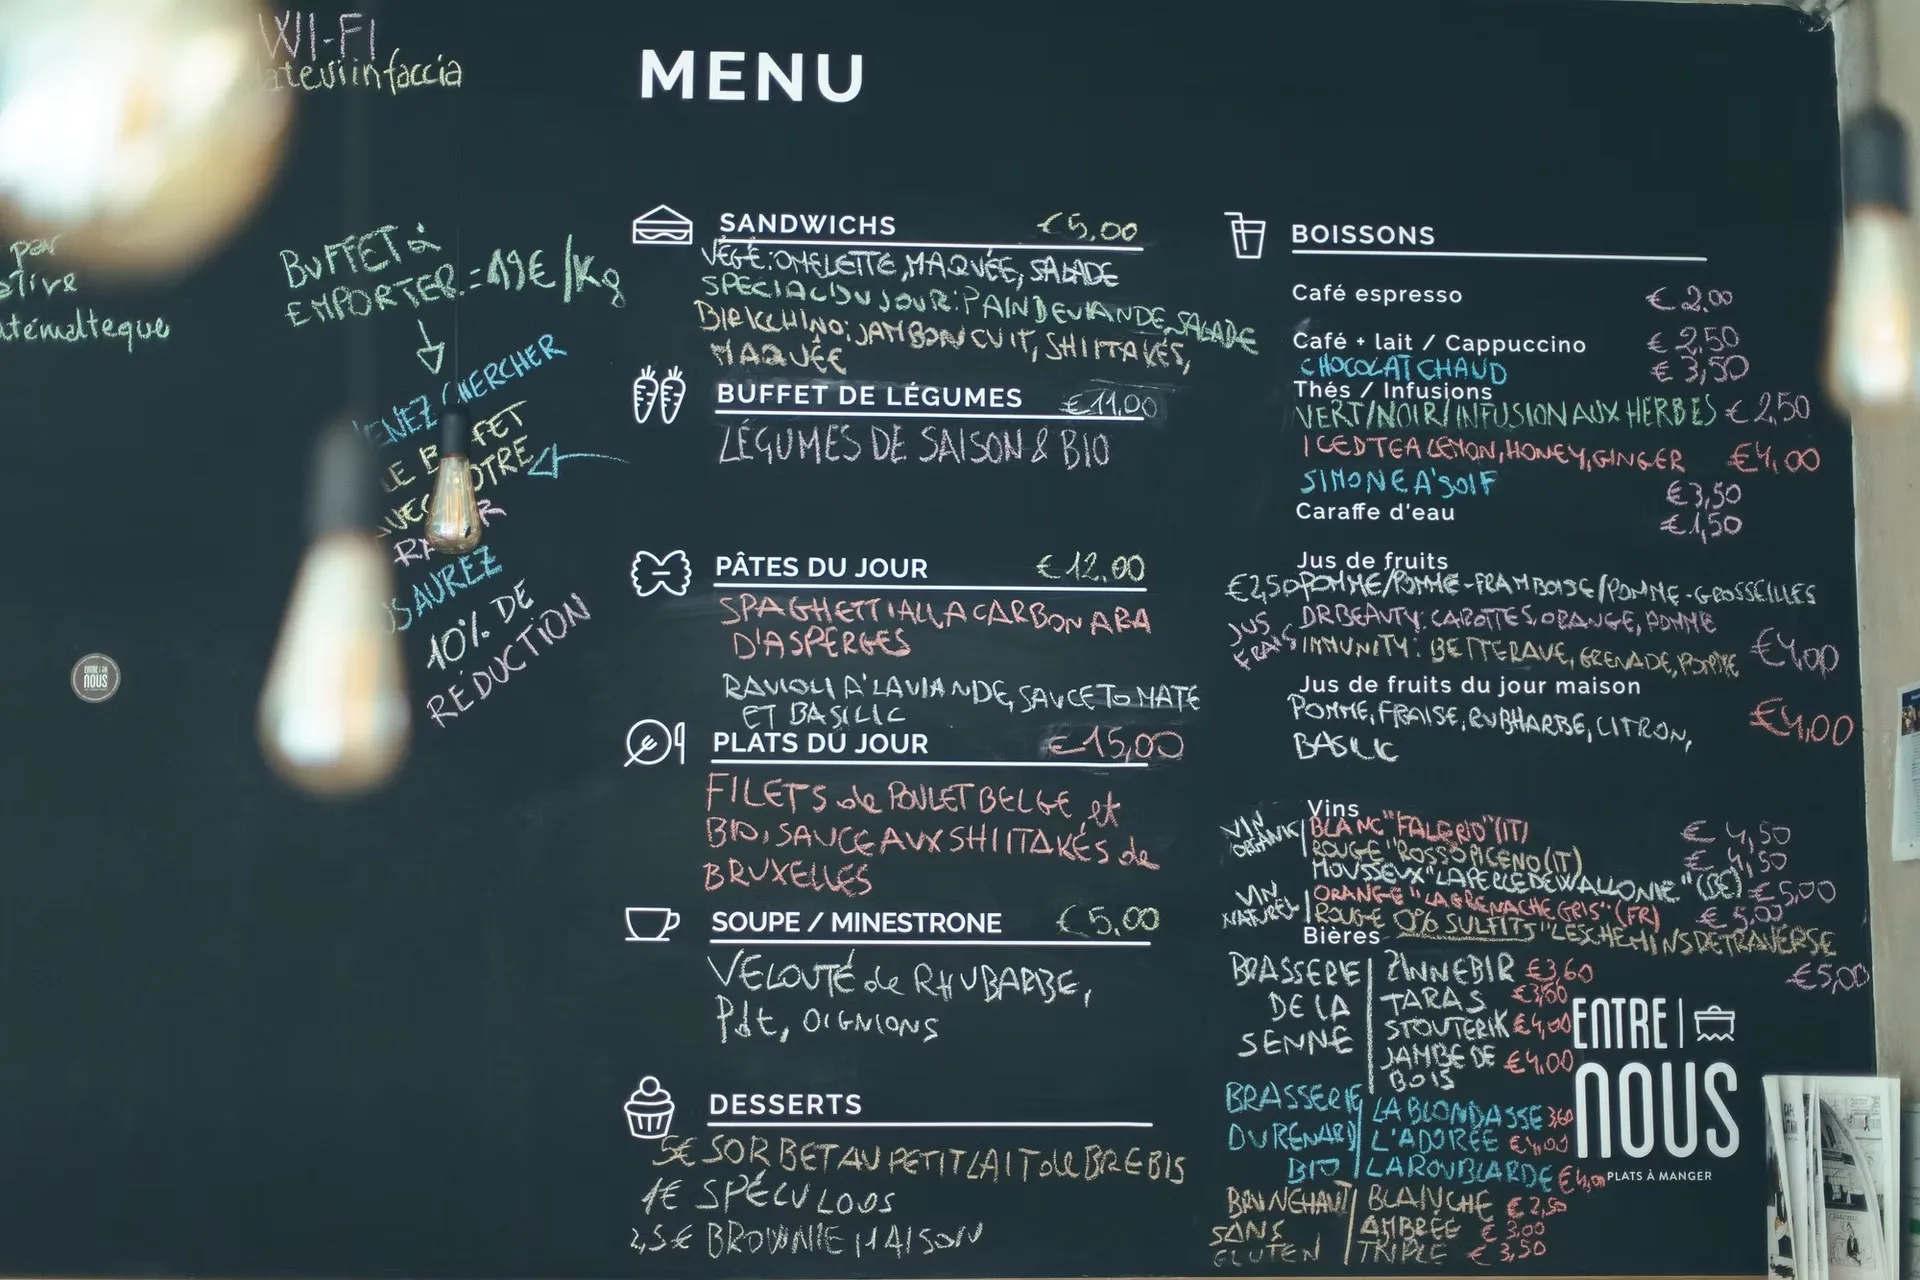 WI-FI
MENU
par
BUFFET à
EMPORTER = 19€/Kg
CHERCHER
10% DE
RÉDUCTION
ENTRE
NOUS
SANDWICHS €5,00
VÉGÉ: OMELETTE, MAQUÉE, SALADE
SPECIAL DU JOUR: PAIN DE VIANDE, SALADE
BIRICCHINO: JAMBON CUIT, SHIITAKÉS,
MAQUÉE
BUFFET DE LÉGUMES €11,00
LÉGUMES DE SAISON & BIO
PÂTES DU JOUR €12.00
SPAGHETTI ALLA CARBONARA
D'ASPERGES
RAVIOLI À LA VIANDE, SAUCE TOMATE
ET BASILIC
PLATS DU JOUR €15,00
FILETS de POULET BELGE et
BIO, SAUCE AUX SHIITAKÉS de
BRUXELLES
SOUPE / MINESTRONE €5,00
VELOUTÉ de RHUBARBE,
OIGNIONS
DESSERTS
5€ SORBET AU PETIT LAIT de BREBIS
1€ SPÉCULOOS
2,5€ BROWNIE MAISON
BOISSONS
Café espresso €2,00
Café + lait / Cappuccino €2,50
CHOCOLAT CHAUD €3,50
Thés / Infusions
VERT/NOIR/INFUSION AUX HERBES €2,50
ICED TEA LEMON, HONEY, GINGER €4,00
SIMONE A SOIF €3,50
Caraffe d'eau €1,50
Jus de fruits
€2,50 POMME/POMME-FRAMBOISE/POMME-GROSSEILLES
JUS FRAIS DR BEAUTY: CAROTTES, ORANGE, POMME
IMMUNITY: BETTERAVE, GRENADE, POMME €4,00
Jus de fruits du jour maison
POMME, FRAISE, RUBHARBE, CITRON, €4,00
BASILIC
Vins
VIN ORGANIC BLANC "FALERIO" (IT) €4,50
ROUGE "ROSSO PICENO (IT) €4,50
MOUSSEUX "LA PERLE DE WALLONIE" (BE) €5,00
VIN NATUREL ORANGE "LA GRENACHE GRIS" (FR) €5,00
ROUGE 0% SULFITS "LES CHEMINS DE TRAVERSE
€5,00
Bières
BRASSERIE DE LA SENNE
ZINNEBIR €3,60
TARAS €3,60
STOUTERIK €4,00
JAMBE DE €4,00
BOIS
BRASSERIE DU RENARD BIO
LA BLONDASSE 3,60
L'ADORÉE €4,00
LA ROUBLARDE €4,00
BRUNEHAUT SANS GLUTEN
BLANCHE €2,50
AMBRÉE €3,00
TRIPLE €3,50
ENTRE
NOUS
PLATS À MANGER